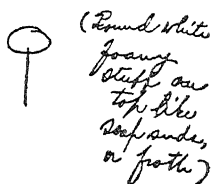 (Round white
foamy
stuff on
top like
soap suds,
or froth)